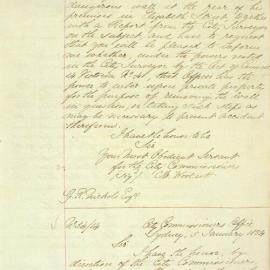 dangerous wall at the rear of his
premises in Elizabeth Street together
with a Report from the City Surveyor
on the subject and have to request
that you will be pleased to inform
me whether under the powers vested
in the City Surveyor by the Act of Council
Victoria No. 41, that Officer has the
power to enter upon private property
for the purpose of removing the wall
in question, or taking such steps as
may be necessary to prevent accident
therefrom.
I have the honor to be
Sir
Your Most Obedient Servant
for the City Commissioners
G. R. Nichols Esqr
No 54/14
City Commissioners Office
Sydney, 5 January 1854
Sir
I have the honor, by
direction of the City Commissioners,